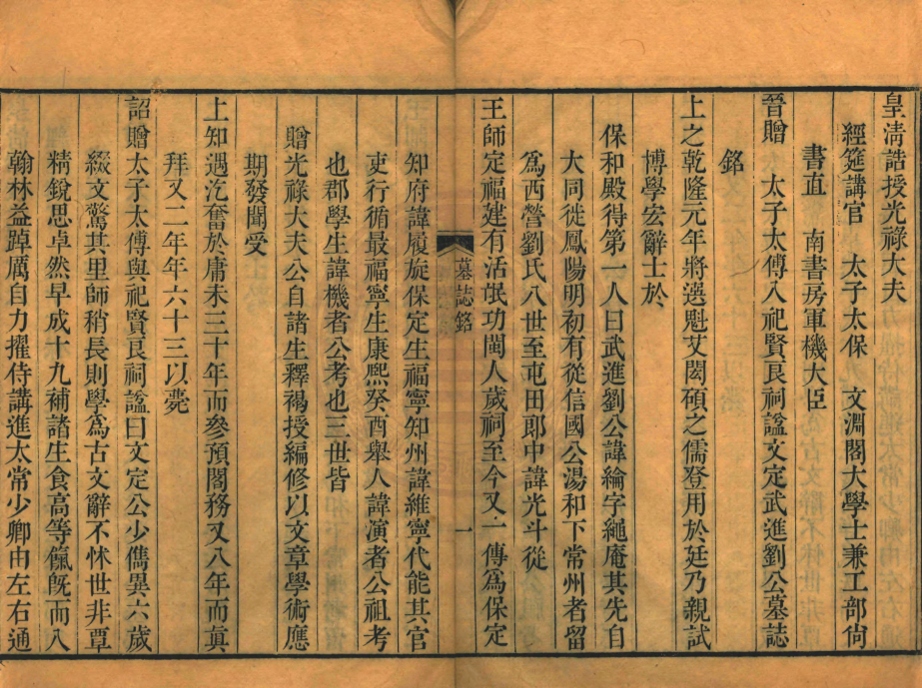 皇淸誥授光祿大夫
經筵講官　太子太保　文淵閣大學士兼工部尙
書直　南書房軍機大臣
晉贈　太子太傅入祀賢良祠諡文定武進劉公墓誌
銘
上之乾隆元年將選魁艾閎碩之儒登用於廷乃親試
博學宏辭士於
保和殿得第一人曰武進劉公諱綸字繩庵其先自
大同徙鳳陽明初有從信國公湯和下常州者留
爲西營劉氏八世至屯田郎中諱光斗從
王師定福建有活氓功閩人歲祠至今又一傳爲保定
墓誌銘
一
知府諱履旋保定生福寧知州諱維寧代能其官
吏行循最福寧生康熙癸酉舉人諱演者公祖考
也郡學生諱機者公考也三世皆
贈光祿大夫公自諸生釋褐授編修以文章學術應
期發聞受
上知遇汔奮於庸未三十年而參預閣務又八年而眞
拜又二年年六十三以薨
詔贈太子太傅與祀賢良祠諡曰文定公少儁異六歲
綴文驚其里師稍長則學爲古文辭不怵世非覃
精銳思卓然早成十九補諸生食高等餼旣而入
翰林益踔厲自力擢侍講進太常少卿由左右通